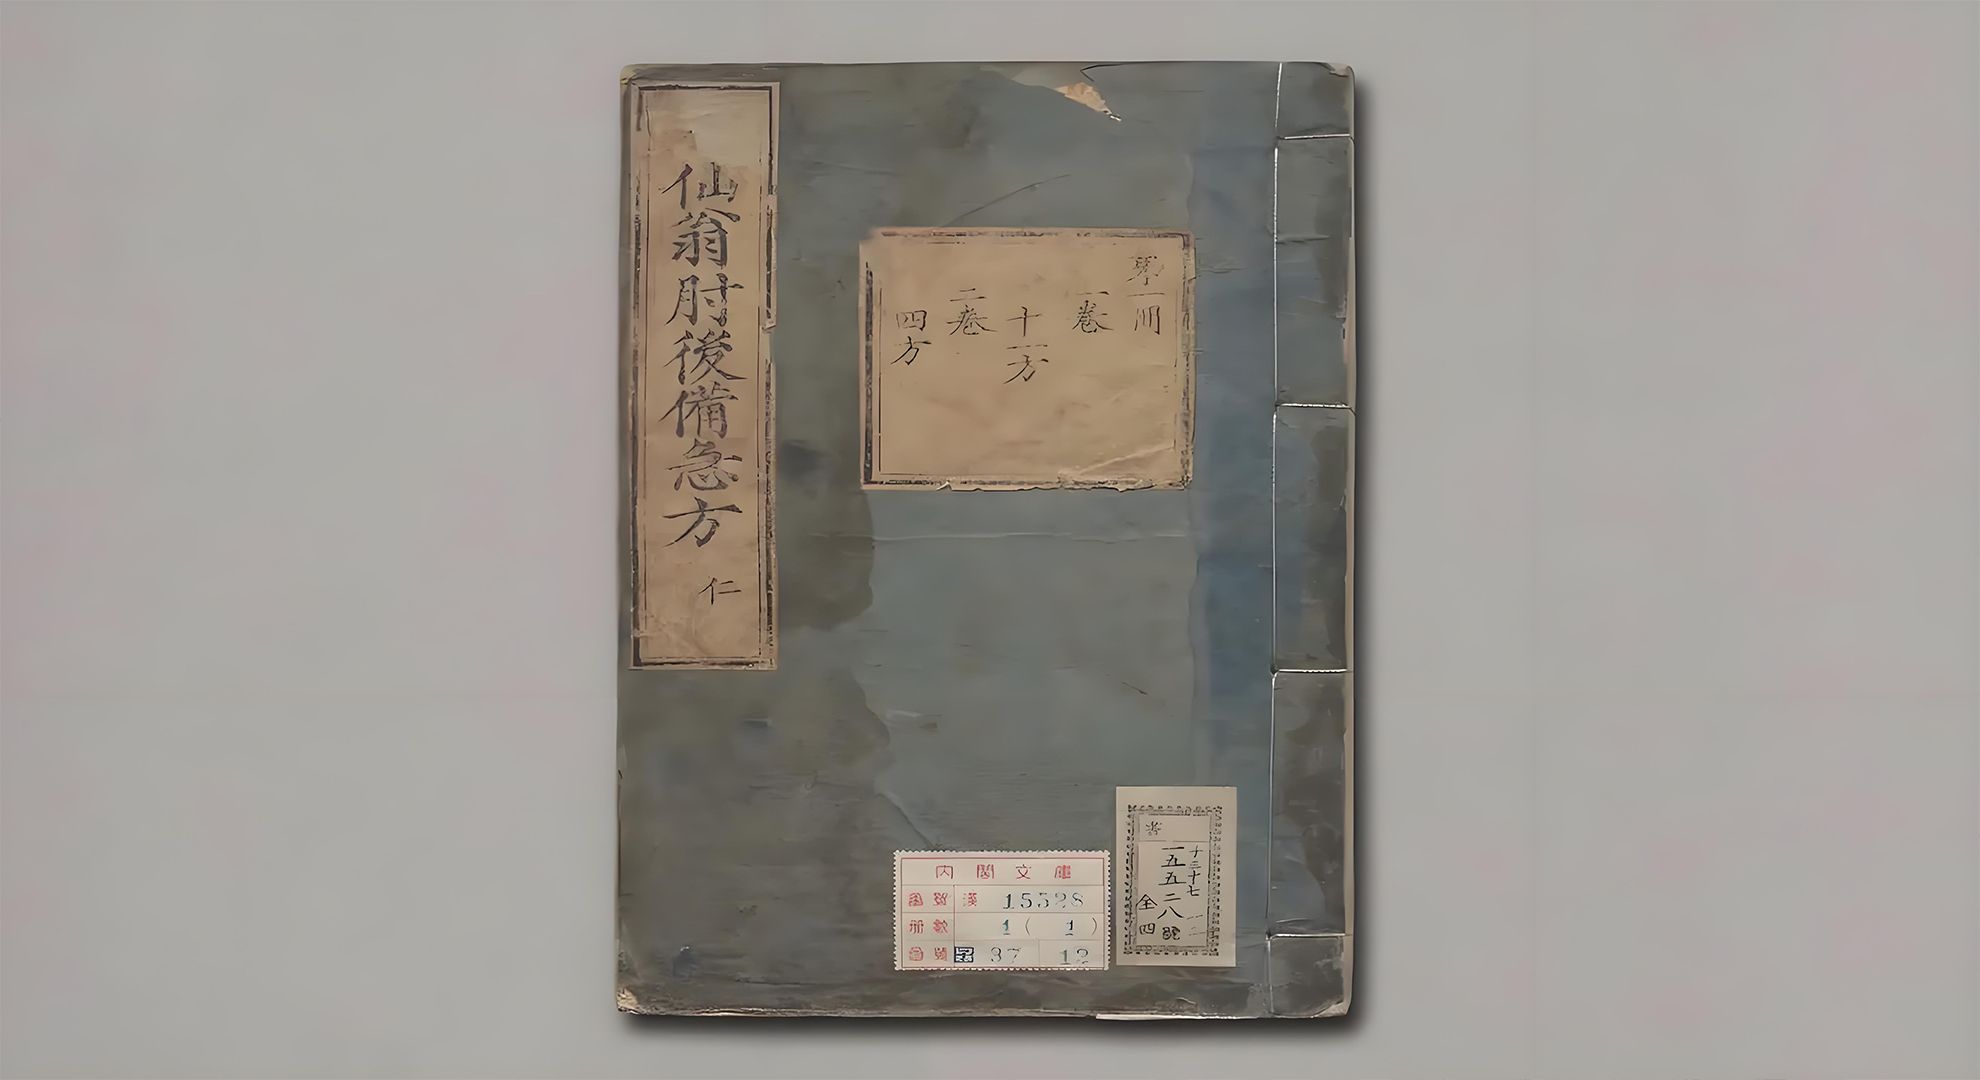 仙翁肘後備急方 仁
第一冊
一卷
十一方
二卷
四方
内閣文庫
漢 15528
冊數 1 ( 1 )
37 12
十三十七
一五五二八
全四